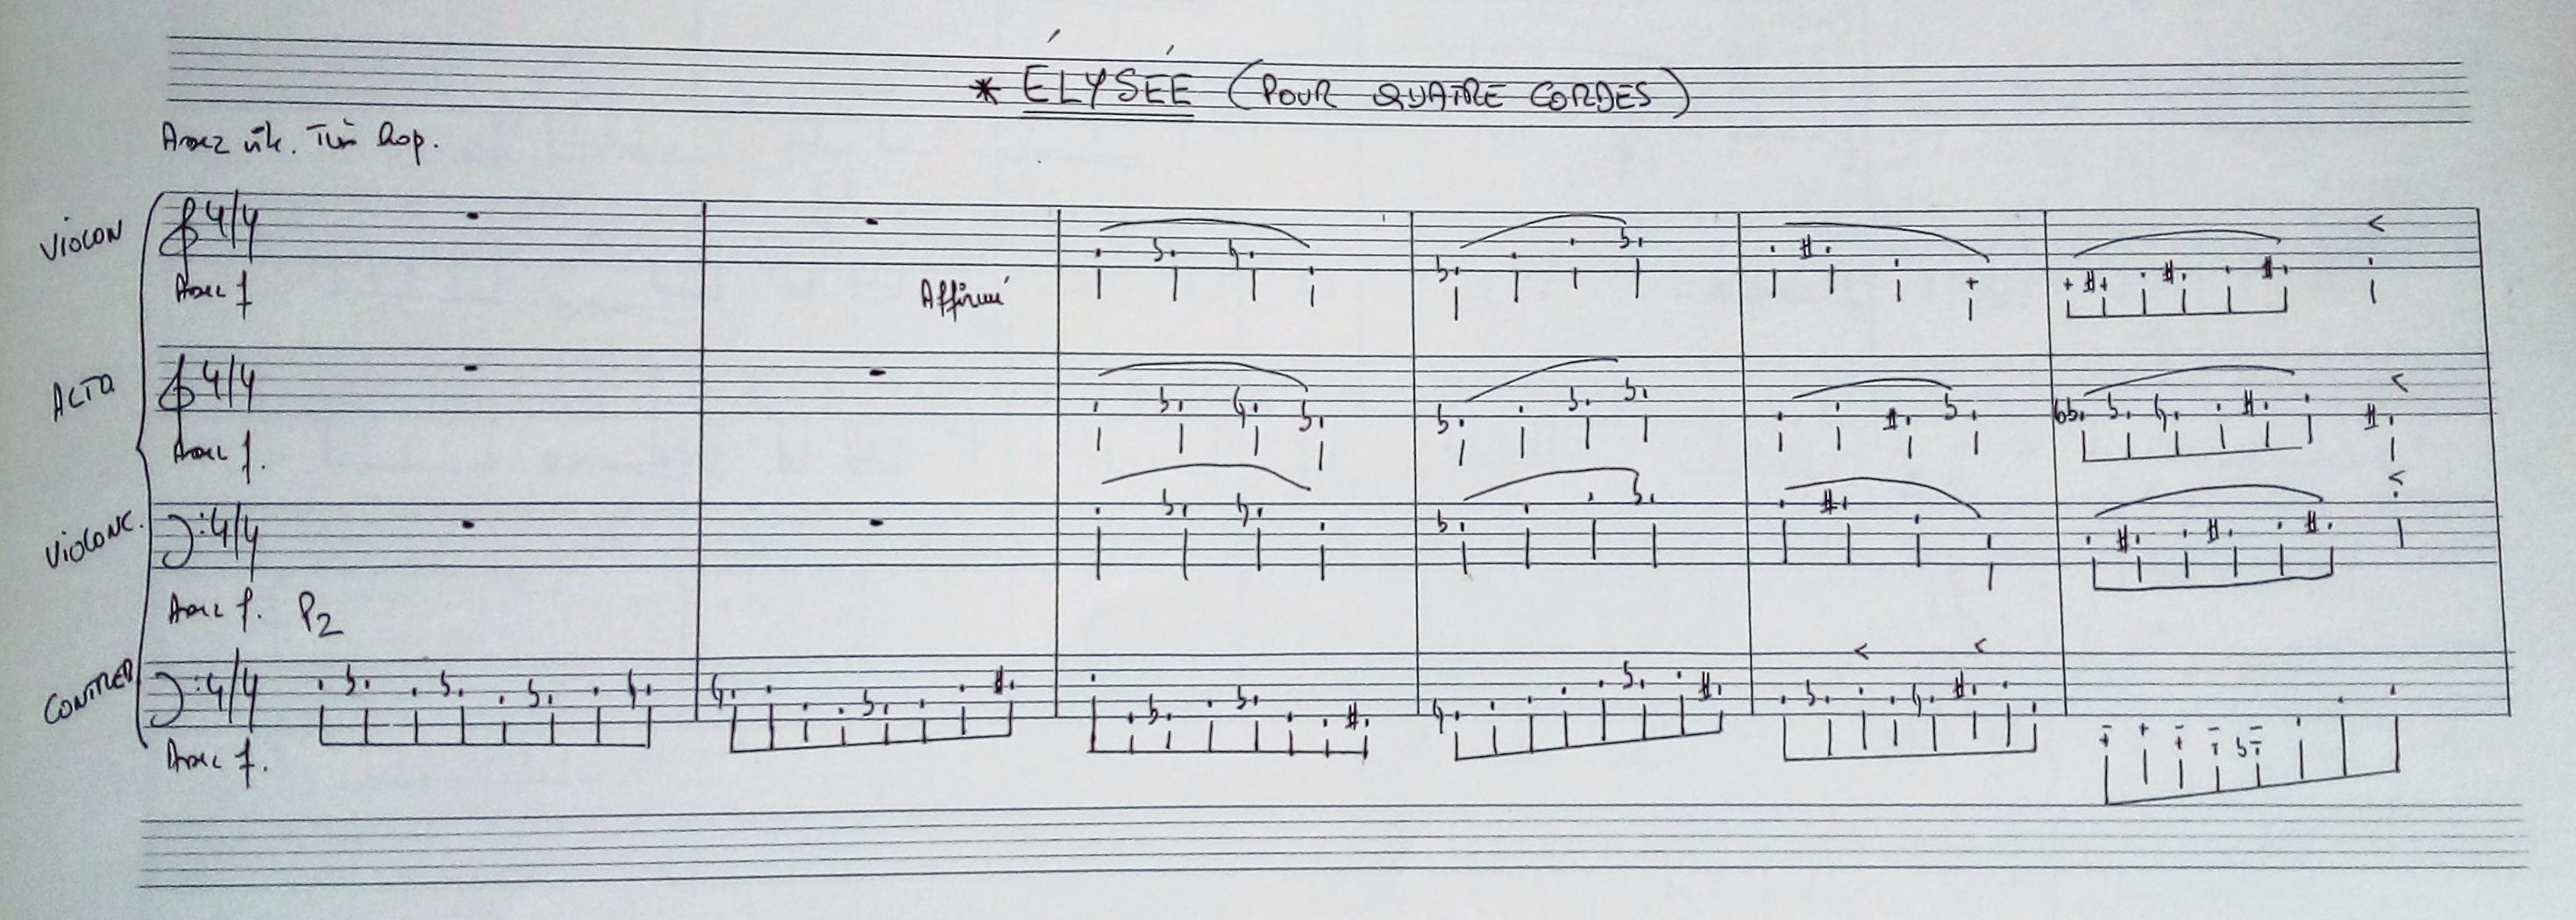 * ÉLYSÉE (POUR QUATRE CORDES)
Assez vite. Très
VIOLON
4/4
Assez f
Affirmé
ALTO
4/4
Assez f.
VIOLONC.
4/4
Assez f. P2
CONTREB
4/4
Assez f.